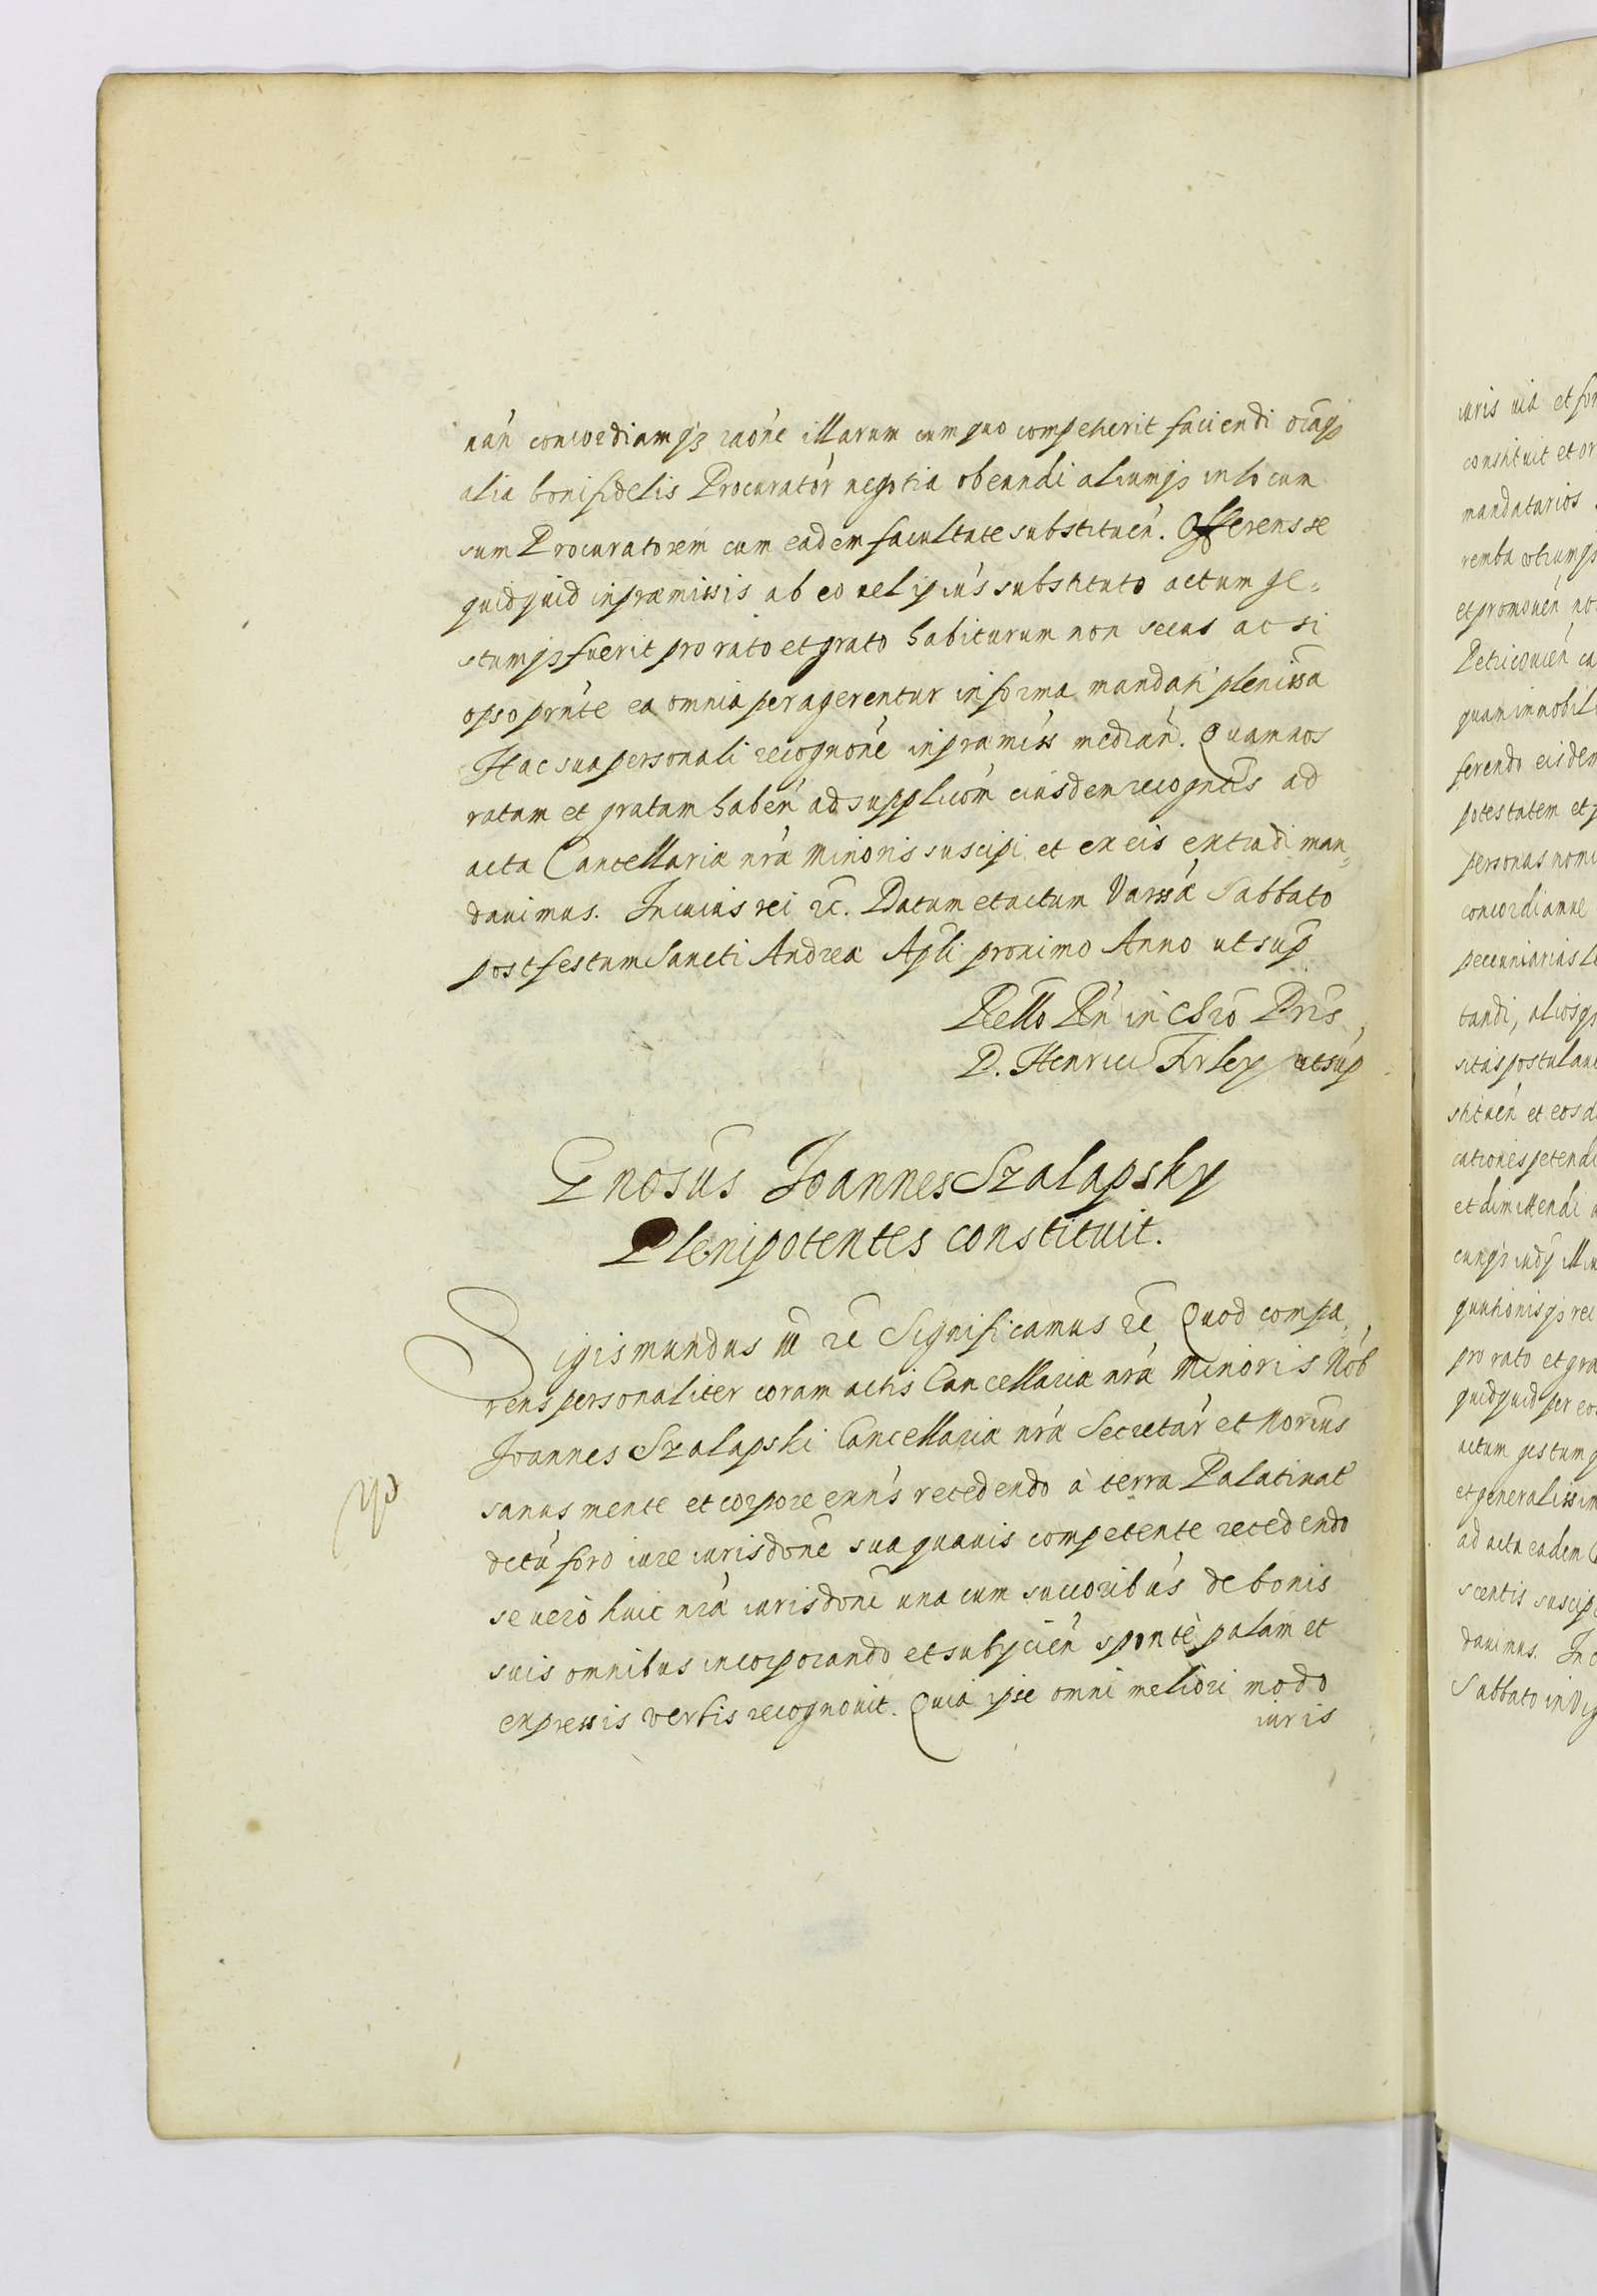 uań concordiamq́ʒ raońe illarum cum quo competierit faciendi oĩaqʒ
alia boni fidelis Procuratór negotia obeundi aliumqʒ in locum
suum Procuratorem cum eadem facultate substituéń. Offerens se
quidquid in præmissis ab eo vel ipiús substituto actum ge=
stumqʒ fuerit pro rato et grato habiturum non secus ac si
opso prñte ea omnia peragerentur in forma mandati plenissã
Hac sua personali recognońe in præmiss mediań. Quam nos
ratam et gratam habeń ad supplicõm eiusdem recogntis ad
acta Cancellariæ nrǽ Minoris suscipi et ex eis extradi man=
dauimus. In cuius rei ꝛc̃. Datum et actum Varssæ Sabbato
post festum Sancti Andreæ Apłi proximo Anno ut sup̃
Rello Pń in Chrõ Pris
D. Henrici Firley ut sup̃
Gnosus Joannes Szalapsky
Plenipotentes constituit.
Sigismundus III ꝛc̃ Significamus ꝛc̃ Quod compa,
rens personaliter coram actis Cancellariæ nrǽ Minoris Nob
Joannes Szalapski Cancellariæ nrǽ Secretár et Norius
sanus mente et corpore exńs recedendo à terra Palatinat
dctú foro iure iurisdońe sua quauis competente recedendo
se verò huic nrǽ iurisdoni una cum succoribús de bonis
suis omnibus incorporando et subjicień spontè palam et
expressis verbis recognouit. Quia ipse omni meliori modo
iuris
iuris via et for
constituit et or
mandatarios
remba
et promouéń no
Petricouień ca
quam immobil
ferendo eisdem
potestatem et p
personas nomi
concordiamue
pecuniarias
tandi, aliosqʒ
sitas postulan
stituéń et eos d
cationes petendi
et dimittendi a
cunqʒ iudy illiu
quutionisqʒ rei
pro rato et gra
quidquid per eos
actum gestumq
et generalissim
ad acta eadem
scentis suscipi
dauimus. In c
Sabbato in Vig